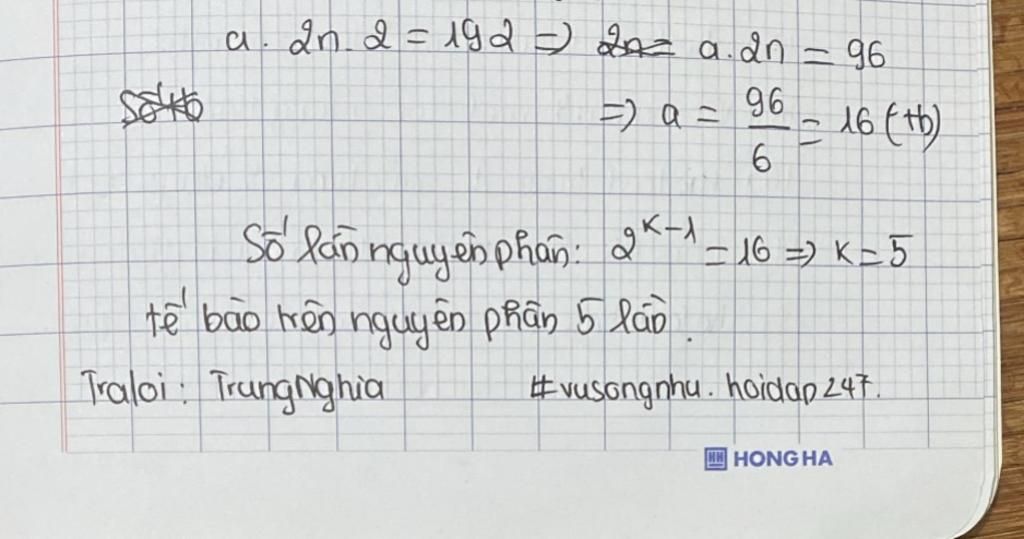 a. 2n. 2 = 192 => 2n= a. 2n = 96
Số tb
=> a = 96/6 = 16 (tb)
Số lần nguyên phân: 2^{k-1} = 16 => k = 5
tế bào trên nguyên phân 5 lần.
Traloi: TrungNghia #vusongnhu. hoidap247.
HH HONG HA